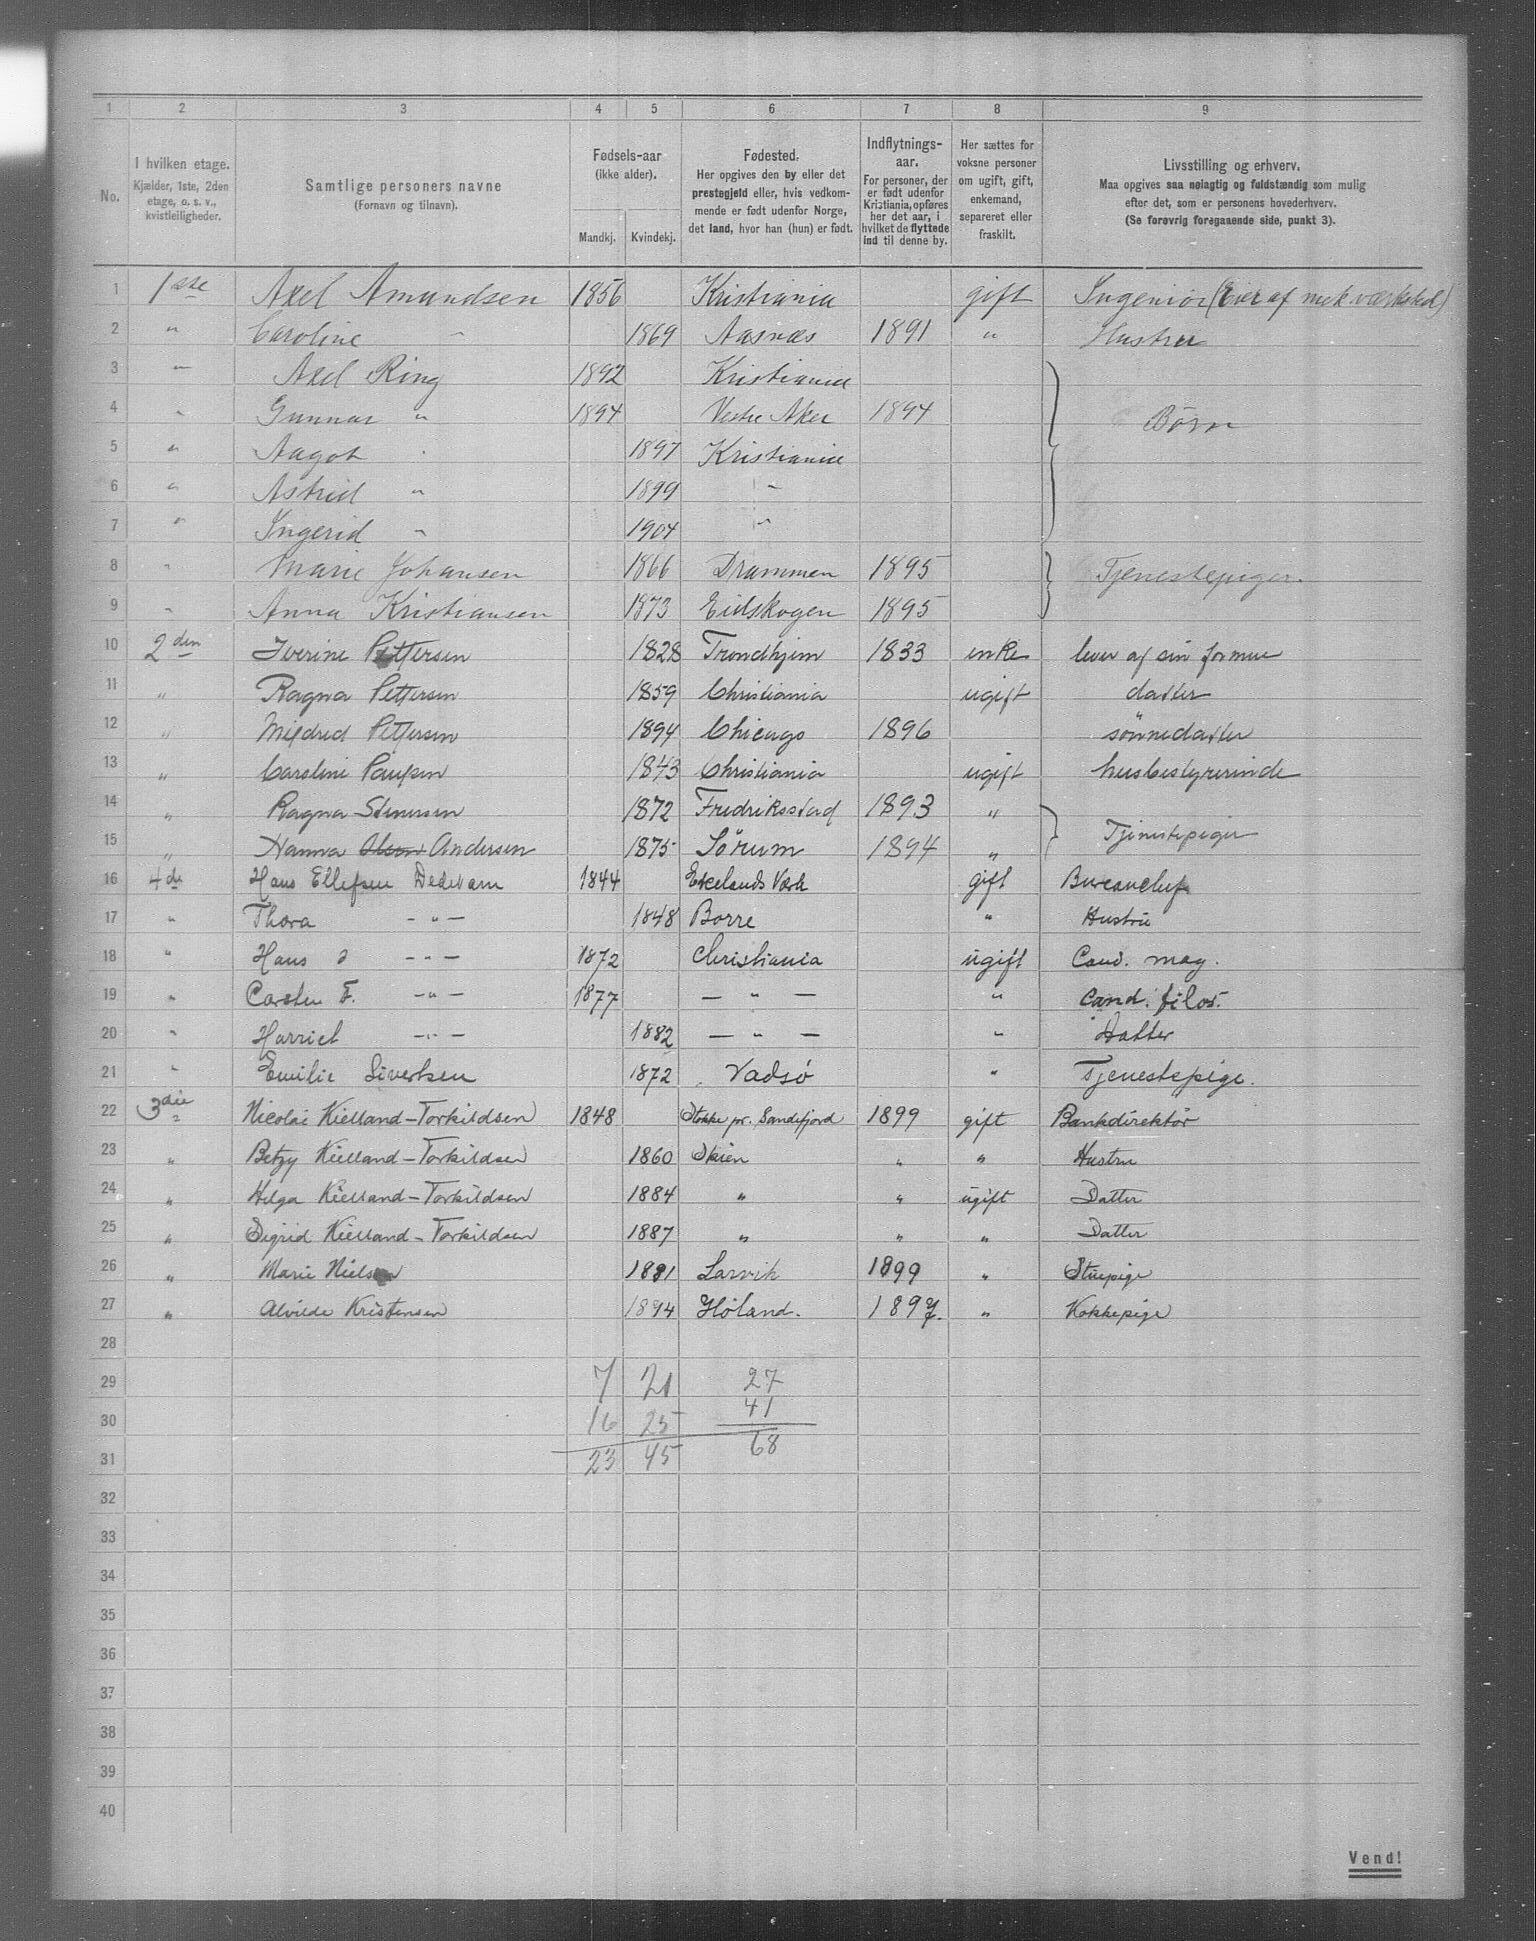 1 2 3 4 5 6 7 8 9
No. I hvilken etage. Kjælder, 1ste, 2den etage, o. s. v., kvistleiligheder. Samtlige personers navne (Fornavn og tilnavn). Fødsels-aar (ikke alder). Mandkj. Kvindekj. Fødested. Her opgives den by eller det prestegjeld eller, hvis vedkommende er født udenfor Norge, det land, hvor han (hun) er født. Indflytnings-aar. For personer, der er født udenfor Kristiania, opføres her det aar, i hvilket de flyttede ind til denne by. Her sættes for voksne personer om ugift, gift, enkemand, separeret eller fraskilt. Livsstilling og erhverv. Maa opgives saa nøiagtig og fuldstændig som mulig efter det, som er personens hovederhverv. (Se forøvrig foregaaende side, punkt 3).
1 1ste Axel Amundsen 1856 Kristiania gift Ingeniør (Eier af mek værksted)
2 " Caroline " 1869 Aasnæs 1891 " Hustru
3 " Axel Ring 1892 Kristiania
4 " Gunnar " 1894 Vestre Aker 1894 Børn
5 " Aagot " 1897 Kristiania
6 " Astrid " 1899 "
7 " Ingerid " 1904 "
8 " Marie Johansen 1866 Drammen 1895 Tjenestepiger.
9 " Anna Kristiansen 1873 Eidskogen 1895
10 2den Iverine Pettersen 1828 Trondhjem 1833 enke lever af sin formue
11 " Ragna Pettersen 1859 Christiania ugift datter
12 " Mildred Pettersen 1894 Chicago 1896 sønnedatter
13 " Caroline Paulsen 1843 Christiania ugift husbestyrerinde
14 " Ragna Stenersen 1872 Fredriksstad 1893 " Tjenestepiger
15 " Hanna Olsen Andersen 1875 Sørum 1894 "
16 4de Hans Ellefsen Dedekam 1844 Egelands Værk gift Bureauchef
17 " Thora — " — 1848 Borre " Hustru
18 " Hans — " — 1872 Christiania ugift Cand. mag.
19 " Carsten F. — " — 1877 — " — " Cand. filos.
20 " Harriet — " — 1882 — " — " Datter
21 " Emilie Sivertsen 1872 Vadsö " Tjenestepige.
22 3die Nicolai Kielland-Torkildsen 1848 Stokke pr. Sandefjord 1899 gift Bankdirektør
23 " Betzy Kielland-Torkildsen 1860 Skien " " Hustru
24 " Helga Kielland-Torkildsen 1884 " " ugift Datter
25 " Sigrid Kielland-Torkildsen 1887 " " " Datter
26 " Marie Nielsen 1881 Larvik 1899 " Stuepige
27 " Alvilde Kristensen 1874 Høland. 1897. " Kokkepige
28
29 7 21 27
30 16 25 41
31 23 45 68
32
33
34
35
36
37
38
39
40
Vend!